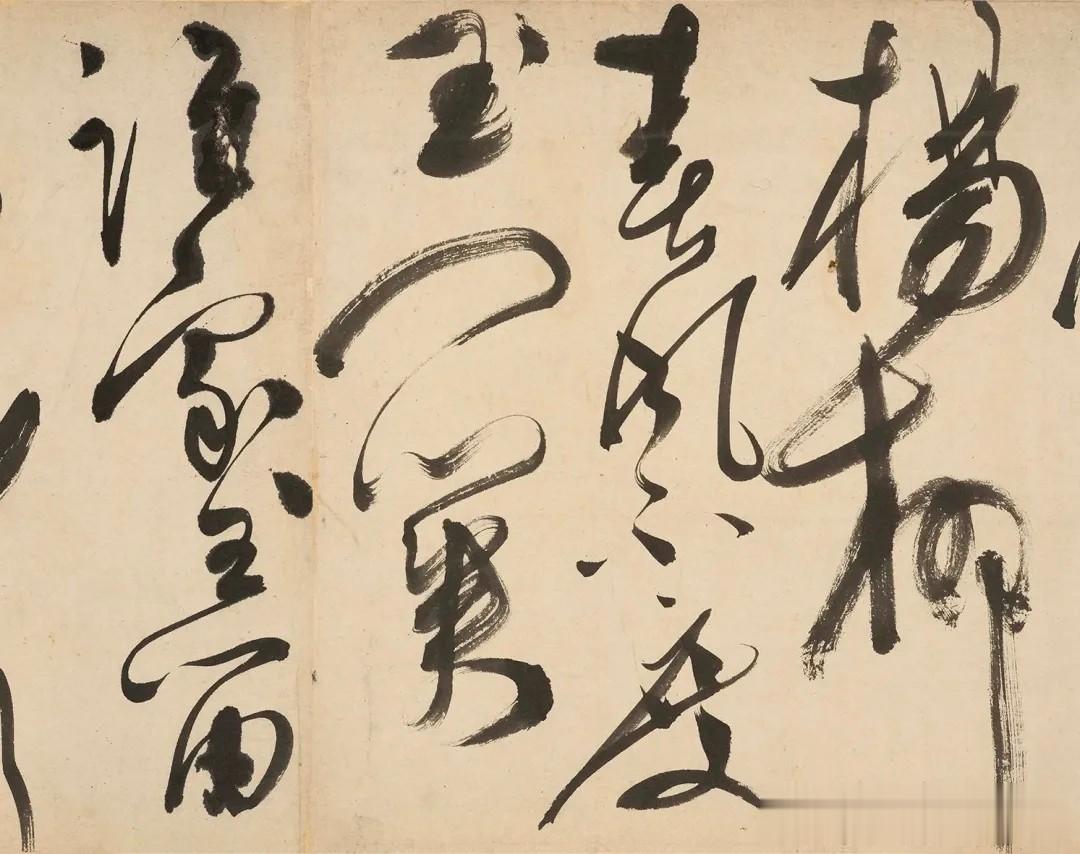 楊柳
春風不度
玉門關
誰家玉笛